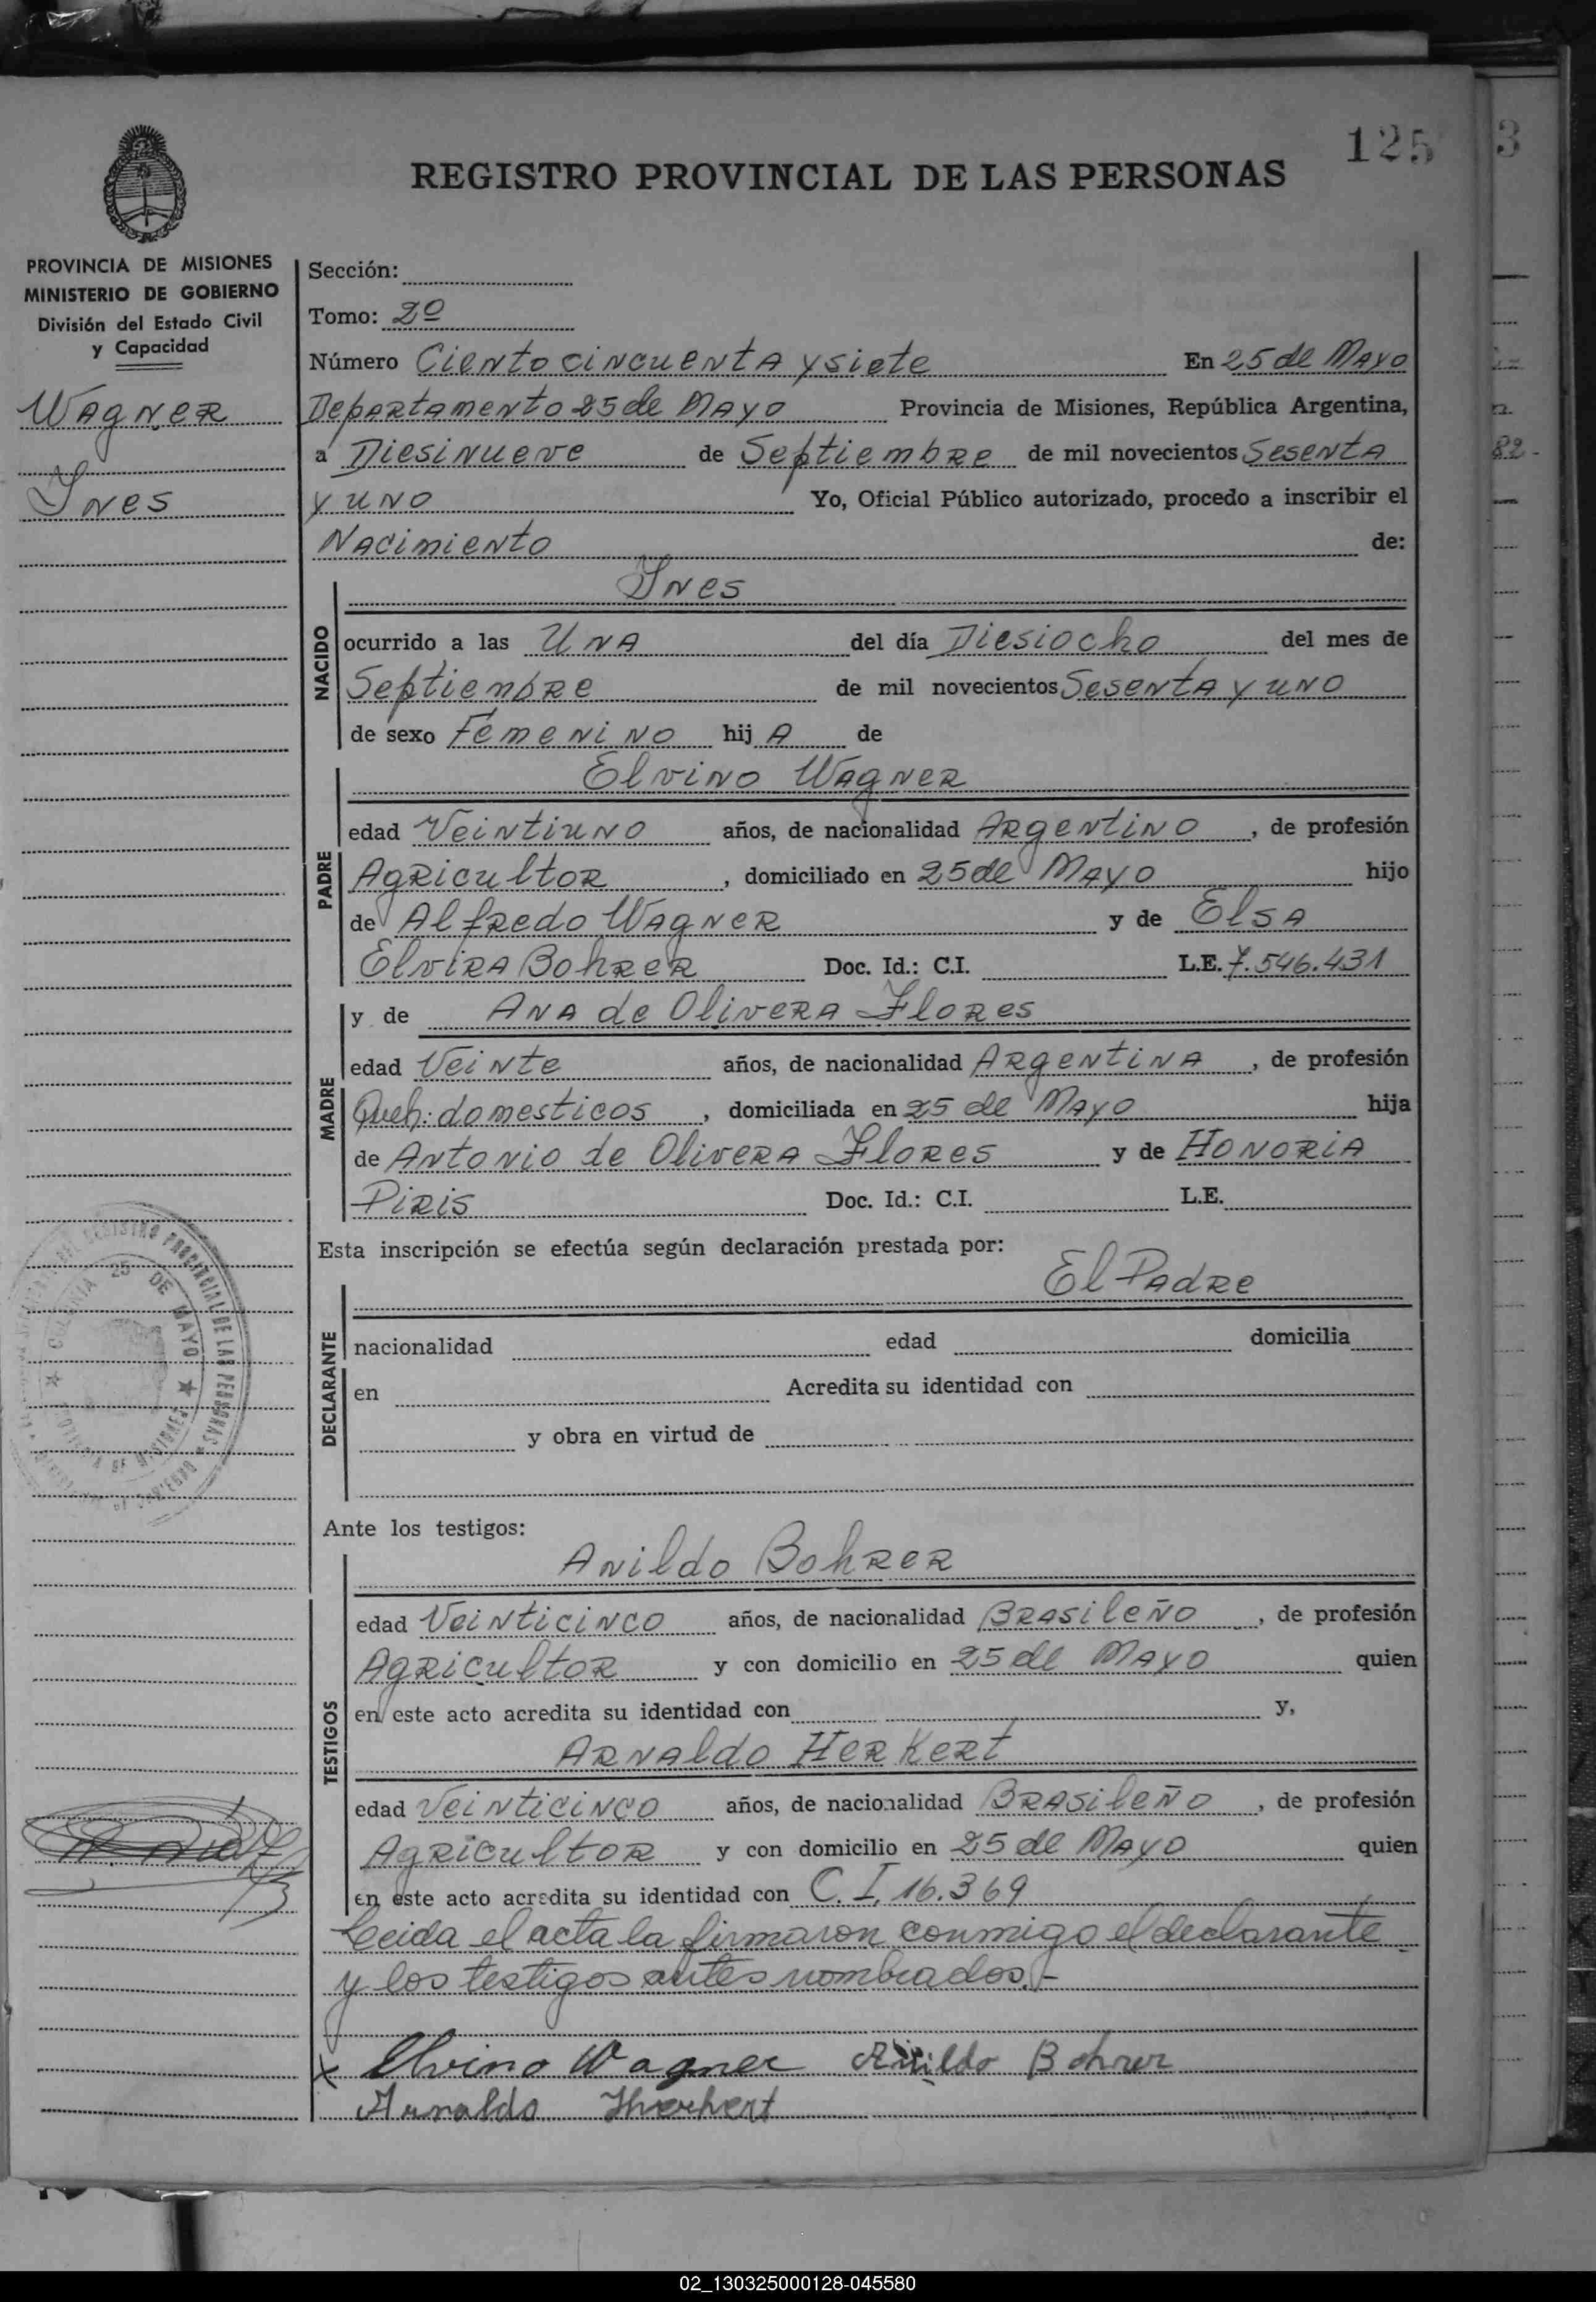 125
3
REGISTRO PROVINCIAL DE LAS PERSONAS
PROVINCIA DE MISIONES
MINISTERIO DE GOBIERNO
División del Estado Civil
y Capacidad
Wagner
Ynes
Sección:
Tomo: 2º
Número Ciento cincuenta y siete En 25 de Mayo
Departamento 25 de Mayo Provincia de Misiones, República Argentina,
a Diesinueve de Septiembre de mil novecientos Sesenta
y uno Yo, Oficial Público autorizado, procedo a inscribir el
Nacimiento de:
NACIDO
Ynes
ocurrido a las Una del día Diesiocho del mes de
Septiembre de mil novecientos Sesenta y uno
de sexo Femenino hij A de
PADRE
Elvino Wagner
edad Veintiuno años, de nacionalidad Argentino, de profesión
Agricultor, domiciliado en 25 de Mayo hijo
de Alfredo Wagner y de Elsa
Elvira Bohrer Doc. Id.: C.I. L.E. 7.546.431
MADRE
y de Ana de Olivera Flores
edad Veinte años, de nacionalidad Argentina, de profesión
Queh: domesticos, domiciliada en 25 de Mayo hija
de Antonio de Olivera Flores y de Honoria
Piris Doc. Id.: C.I. L.E.
Esta inscripción se efectúa según declaración prestada por:
El Padre
DECLARANTE
nacionalidad edad domicilia
en Acredita su identidad con
y obra en virtud de
Ante los testigos:
TESTIGOS
Anildo Bohrer
edad Veinticinco años, de nacionalidad Brasileño, de profesión
Agricultor y con domicilio en 25 de Mayo quien
en este acto acredita su identidad con y,
Arnaldo Herkert
edad Veinticinco años, de nacionalidad Brasileño, de profesión
Agricultor y con domicilio en 25 de Mayo quien
en este acto acredita su identidad con C.I. 16.369
Leida el acta la firmaron conmigo el declarante
y los testigos antes nombrados.-
x Elvino Wagner Anildo Bohrer
Arnaldo Herkert
REGISTRO PROVINCIAL DE LAS PERSONAS
COLONIA 25 DE MAYO
82-
02_130325000128-045580